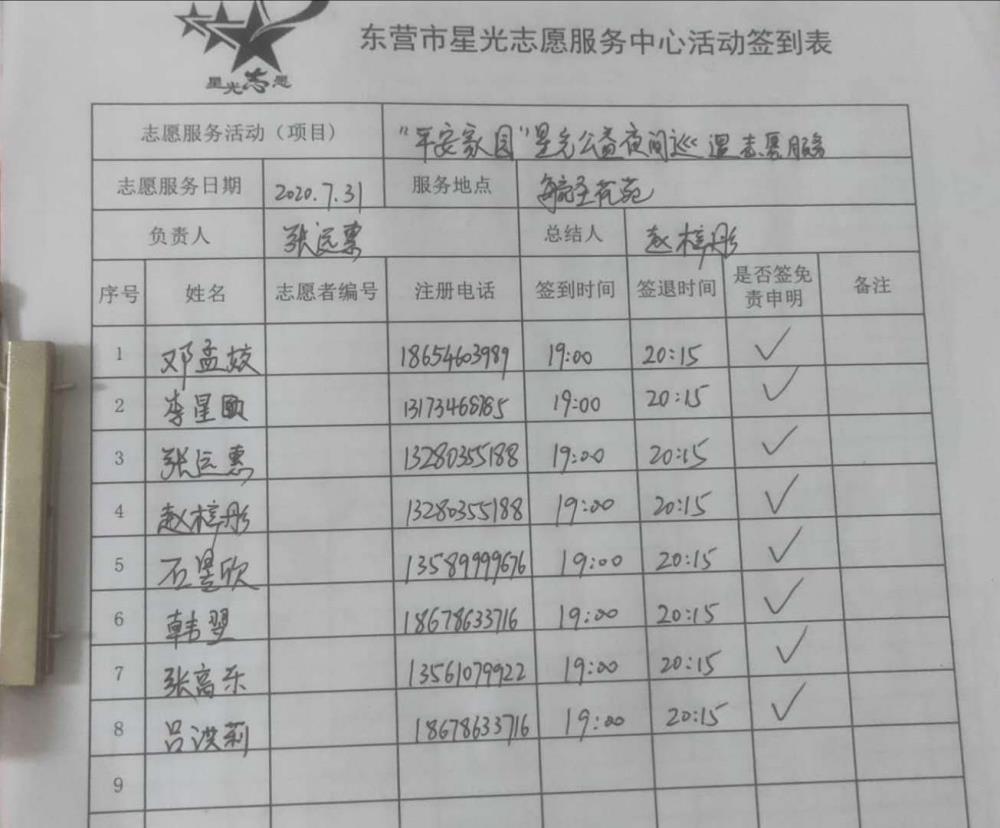 星光志愿
东营市星光志愿服务中心活动签到表
志愿服务活动（项目） "平安家园"星光公益夜间巡逻志愿服务
志愿服务日期 2020.7.31 服务地点 苑
负责人 张运惠 总结人 赵梓彤
序号 姓名 志愿者编号 注册电话 签到时间 签退时间 是否签免责申明 备注
1 邓孟 18654603989 19:00 20:15 ✓
2 李星 19:00 20:15 ✓
3 张运惠 13280355188 19:00 20:15 ✓
4 赵梓彤 13280355188 19:00 20:15 ✓
5 石昱欣 13589999676 19:00 20:15 ✓
6 韩翌 18678633716 19:00 20:15 ✓
7 张高乐 13561079922 19:00 20:15 ✓
8 吕洪莉 18678633716 19:00 20:15 ✓
9